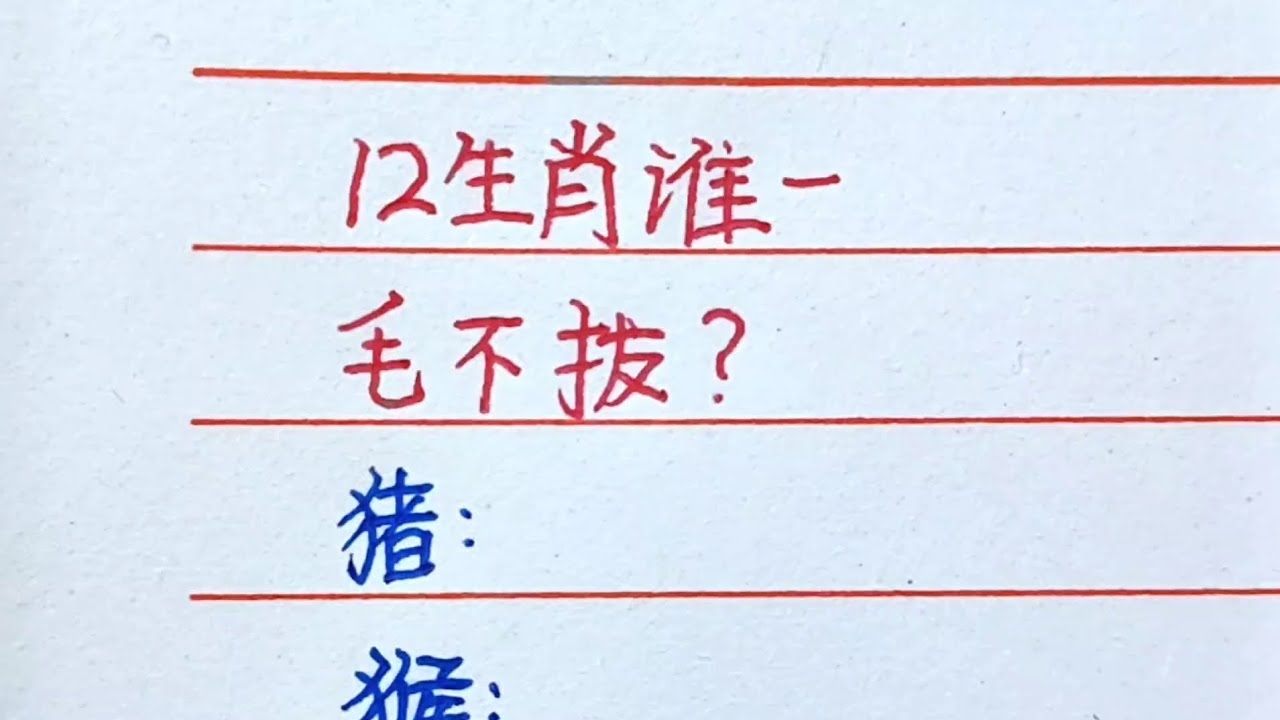 12生肖谁一
毛不拔?
猪:
猴: